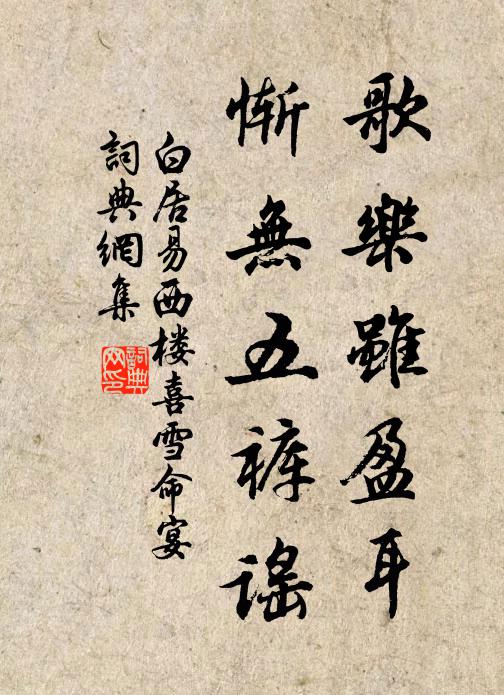 歌樂雖盈耳
慚無五褲謠
白居易西楼喜雪命宴
詞典網集
詞典网印